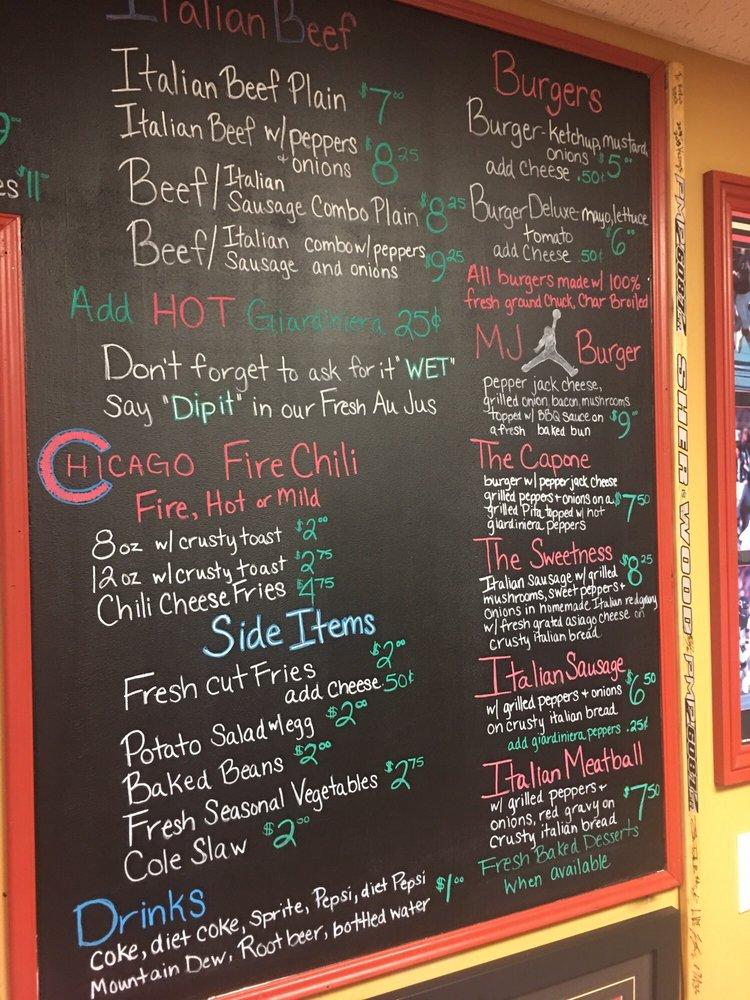 Italian Beef
Italian Beef Plain $7.00
Italian Beef w/peppers
+ onions $8.25
Beef/Italian
Sausage Combo Plain $8.25
Beef/Italian combo w/peppers
Sausage and onions $9.25
Add HOT Giardiniera 25¢
Don't forget to ask for it "WET"
Say "Dip it" in our Fresh Au Jus
CHICAGO Fire Chili
Fire, Hot or Mild
8oz w/crusty toast $2.00
12oz w/crusty toast $2.75
Chili Cheese Fries $4.75
Side Items
Fresh cut Fries $2.00
add cheese .50¢
Potato Salad w/egg $2.00
Baked Beans $2.00
Fresh Seasonal Vegetables $2.75
Cole Slaw $2.00
Drinks
Coke, diet coke, Sprite, Pepsi, diet Pepsi $1.00
Mountain Dew, Root beer, bottled water
Burgers
Burger-ketchup, mustard,
onions $5.00
add cheese .50¢
Burger Deluxe-mayo, lettuce
tomato $6.00
add cheese .50¢
All burgers made w/ 100%
fresh ground Chuck, Char Broiled
MJ Burger
pepper jack cheese,
grilled onion, bacon, mushrooms
topped w/ BBQ Sauce on
a fresh baked bun $9.00
The Capone
burger w/ pepper jack cheese
grilled peppers + onions on a
grilled Pita, topped w/ hot $7.50
giardiniera peppers
The Sweetness $8.25
Italian Sausage w/ grilled
mushrooms, sweet peppers +
onions in homemade Italian red gravy
w/ fresh grated asiago cheese on
crusty italian bread
Italian Sausage $6.50
w/ grilled peppers + onions
on crusty italian bread
add giardiniera peppers .25¢
Italian Meatball
w/ grilled peppers +
onions, red gravy on $7.50
crusty italian bread
Fresh Baked Desserts
when available
es $11
SHER-WOOD